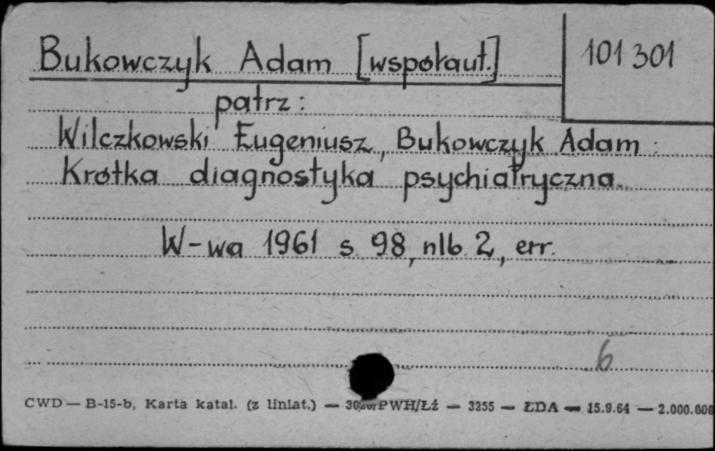 Bukowczyk Adam [współaut.]
101 301
patrz:
Wilczkowski Eugeniusz, Bukowczyk Adam:
Krótka diagnostyka psychiatryczna.
W-wa 1961 s 98, nlb. 2, err.
6
CWD — B-15-b, Karta katal. (z liniat.) — PWH/Łź — 3255 — ŁDA — 15.9.64 — 2.000.000